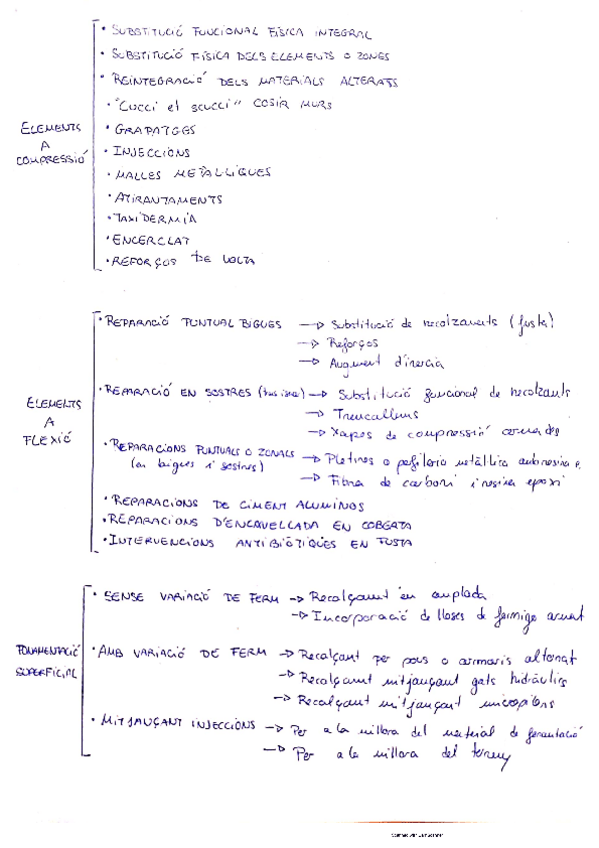 ELEMENTS A COMPRESSIÓ
• SUBSTITUCIÓ FUNCIONAL FÍSICA INTEGRAL
• SUBSTITUCIÓ FÍSICA DELS ELEMENTS O ZONES
• REINTEGRACIÓ DELS MATERIALS ALTERATS
• "Cucci et scucci" COSIR MURS
• GRAPATGES
• INJECCIONS
• MALLES METÀL·LIQUES
• ATIRANTAMENTS
• TAXIDERMIA
• ENCERCLAT
• REFORÇOS DE VOLTA
ELEMENTS A FLEXIÓ
• REPARACIÓ PUNTUAL BIGUES → Substitució de recolzaments (fusta)
→ Reforços
→ Augment d'inercia
• REPARACIÓ EN SOSTRES → Substitució funcional de recolzants
→ Trencallums
→ Xapes de compressió armades
• REPARACIONS PUNTUALS O ZONALS (en bigues i sostres) → Pletines o perfileria metàl·lica
→ Fibra de carboni i resina epoxi
• REPARACIONS DE CIMENT ALUMINOS
• REPARACIONS D'ENCAVELLADA EN COBERTA
• INTERVENCIONS ANTIBIÒTIQUES EN FUSTA
FONAMENTACIÓ SUPERFICIAL
• SENSE VARIACIÓ DE FERM → Recalçant en amplada
→ Incorporació de lloses de formigo armat
• AMB VARIACIÓ DE FERM → Recalçant per pous o armaris alternat
→ Recalçant mitjançant gats hidràulics
→ Recalçant mitjançant micropilons
• MITJANÇANT INJECCIONS → Per a la millora del material de fonamentació
→ Per a la millora del terreny